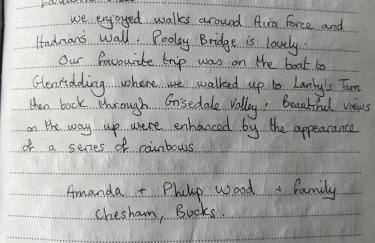 we enjoyed walks around Aira Force and
Hadrian's Wall. Pooley Bridge is lovely.
Our favourite trip was on the boat to
Glenridding where we walked up to Lanty's Tarn
then back through Grisedale Valley. Beautiful views
on the way up were enhanced by the appearance
of a series of rainbows
Amanda + Philip Wood + family
Chesham, Bucks.